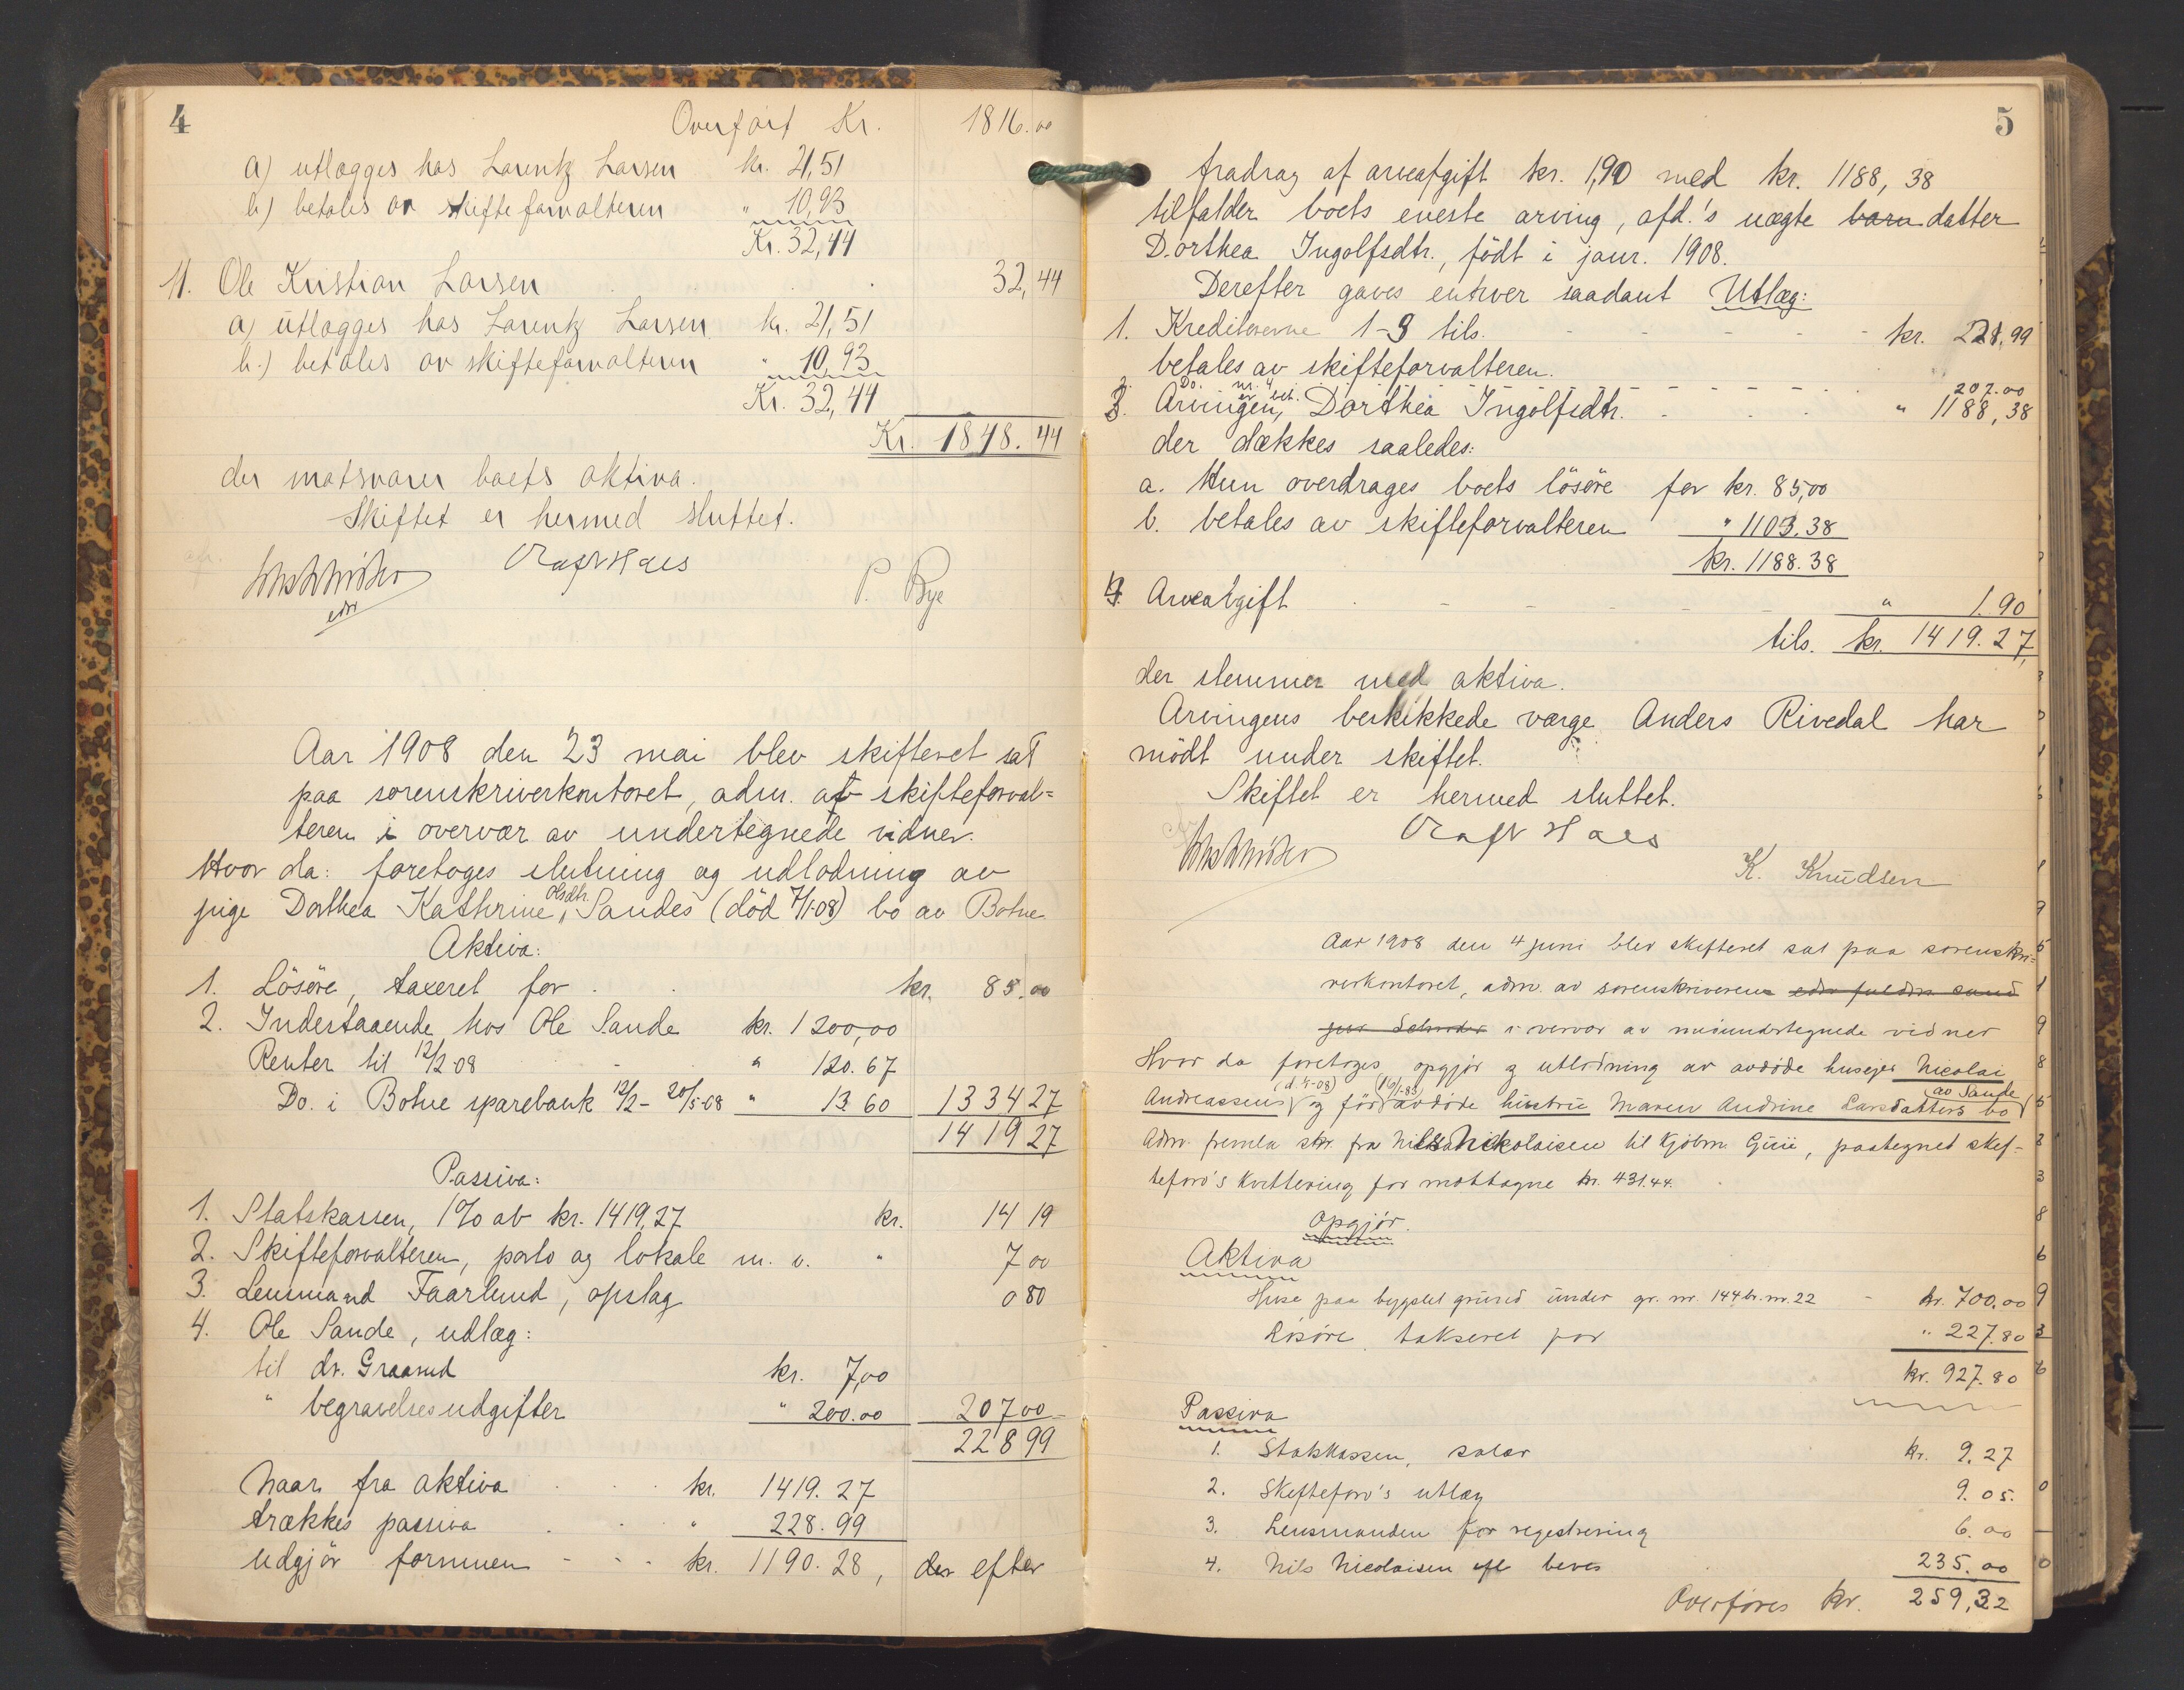 4
Overført Kr. 1816.00
a) utlægges hos Lorentz Larsen kr. 21,51
b) betales av skifteforvalteren " 10,93
Kr. 32,44
11. Ole Kristian Larsen 32,44
a) utlægges hos Lorentz Larsen kr. 21,51
b.) betales av skifteforvalteren " 10,93
Kr. 32,44
Kr. 1848.44
der motsvarer boets aktiva.
Skiftet er hermed sluttet.
Olaf Haes
P. Bye
Aar 1908 den 23 mai blev skifteret sat
paa sorenskriverkontoret, adm. af skifteforval=
teren i overvær av undertegnede vidner.
Hvor da: foretoges slutning og udlodning av
pige Dorthea Kathrine Olsdtr. Sandes (död 7/1-08) bo av Bothne
Aktiva:
1. Lösöre, taxeret for kr. 85.00
2. Indestaaende hos Ole Sande kr. 1200,00
Renter til 12/2 08 " 120.67
Do. i Bothne sparebank 12/2 - 20/5-08 " 13 60 1334 27
1419 27
Passiva:
1. Statskassen, 1% ab kr. 1419,27 kr. 14 19
2. Skifteforvalteren, porto og lokale m. v. " 7 00
3. Lensmand Faarlund, opslag 0 80
4. Ole Sande, udlæg:
til dr. Graarud kr. 7,00
" begravelsesudgifter " 200.00 207 00
228 99
Naar fra aktiva kr. 1419.27
trækkes passiva " 228.99
udgjör formuen kr. 1190.28, der efter
5
fradrag af arveafgift kr. 1,90 med kr. 1188,38
tilfalder boets eneste arving, afd.'s uægte barn datter
Dorthea Ingolfsdtr., födt i janr. 1908.
Derefter gaves enhver saadant Utlæg:
1. Kreditorerne 1-3 tils. kr. 228,99
betales av skifteforvalteren.
2. Do. nr. 4 er bet. 207.00
3. Arvingen, Dorthea Ingolfsdtr. " 1188,38
der dækkes saaledes:
a. Hun overdrages boets lösöre for kr. 85,00
b. betales av skifteforvalteren " 1103,38
kr. 1188.38
4. Arveabgift " 1.90
tils. kr. 1419.27,
der stemmer med aktiva.
Arvingens beskikkede værge Anders Rivedal har
mödt under skiftet.
Skiftet er hermed sluttet.
Olaf Haes
K. Knudsen
Aar 1908 den 4 juni blev skifteret sat paa sorenskri=
verkontoret, adm. av sorenskriveren
i overvær av medundertegnede vidner
Hvor da foretoges opgjör og utlodning av avdöde huseier Nicolai
Andreassens og för avdöde hustru Maren Andrine Larsdatters bo av Sande
Adm. fremla skr. fra Nils Nickolaisen til Kjöbm. Giuii, paategnet skif-
teforv's kvittering for mottagne kr. 431.44.
Opgjör.
Aktiva
Huse paa bygslet grund under gr. nr. 144 br. nr. 22 kr. 700,00
Lösöre takseret for " 227.80
kr. 927.80
Passiva
1. Statskassen, salær kr. 9.27
2. Skifteforv's utlæg 9.05.
3. Lensmanden for registrering 6.00
4. Nils Nicolaisen efl beves 235.00
Overføres kr. 259,32